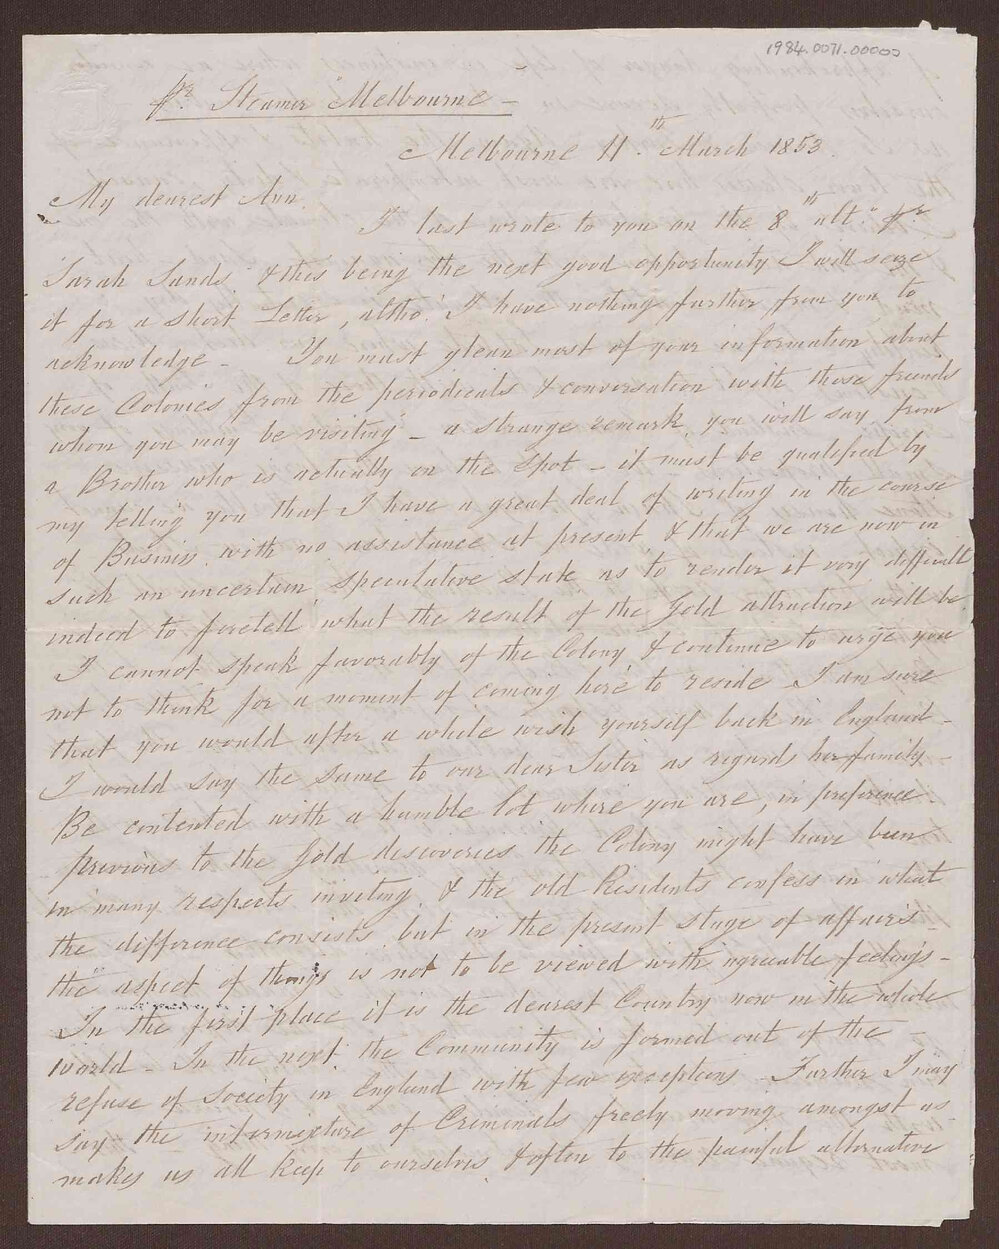 1984.0071.00000
pr Steamer "Melbourne" -
Melbourne 11th March 1853.
My dearest Ann
I last wrote to you on the 8th ult pr
"Sarah Sands" & this being the next good opportunity I will seize
it for a short Letter, altho' I have nothing further from you to
acknowledge - You must glean most of your information about
these Colonies from the periodicals & conversation with those friends
whom you may be visiting - a strange remark, you will say, from
a Brother who is actually on the Spot - it must be qualified by
my telling you that I have a great deal of writing in the course
of Business with no assistance at present & that we are now in
such an uncertain speculative state as to render it very difficult
indeed to foretell what the result of the Gold attraction will be
I cannot speak favorably of the Colony & continue to urge you
not to think for a moment of coming here to reside I am sure
that you would after a while wish yourself back in England -
I would say the same to our dear Sister as regards her family -
Be contented with a humble lot where you are, in preference.
previous to the Gold discoveries the Colony might have been
in many respects inviting, & the old Residents confess in what
the difference consists, but in the present stage of affairs
the aspect of things is not to be viewed with agreeable feelings -
In the first place it is the dearest Country now in the whole
world - In the next the Community is formed out of the -
refuse of Society in England with few exceptions - Further I may
say the intermixture of Criminals freely moving amongst us
makes us all keep to ourselves & often to the painful alternative